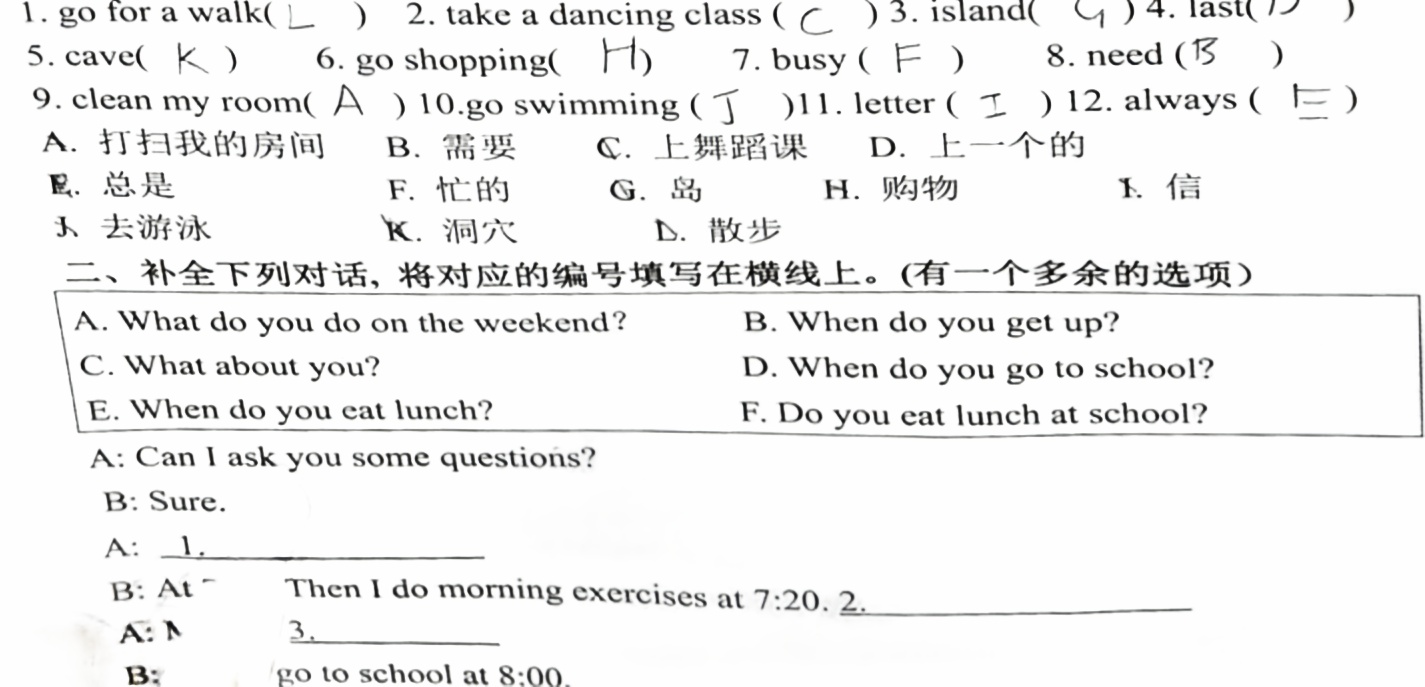 1. go for a walk( L ) 2. take a dancing class ( C ) 3. island( G ) 4. last( D )
5. cave( K ) 6. go shopping( H ) 7. busy ( F ) 8. need ( B )
9. clean my room( A ) 10.go swimming ( J )11. letter ( I ) 12. always ( E )
A. 打扫我的房间 B. 需要 C. 上舞蹈课 D. 上一个的
E. 总是 F. 忙的 G. 岛 H. 购物 I. 信
J. 去游泳 K. 洞穴 L. 散步
二、补全下列对话, 将对应的编号填写在横线上。(有一个多余的选项)
A. What do you do on the weekend? B. When do you get up?
C. What about you? D. When do you go to school?
E. When do you eat lunch? F. Do you eat lunch at school?
A: Can I ask you some questions?
B: Sure.
A: 1.
B: At Then I do morning exercises at 7:20. 2.
A: 3.
B: go to school at 8:00.